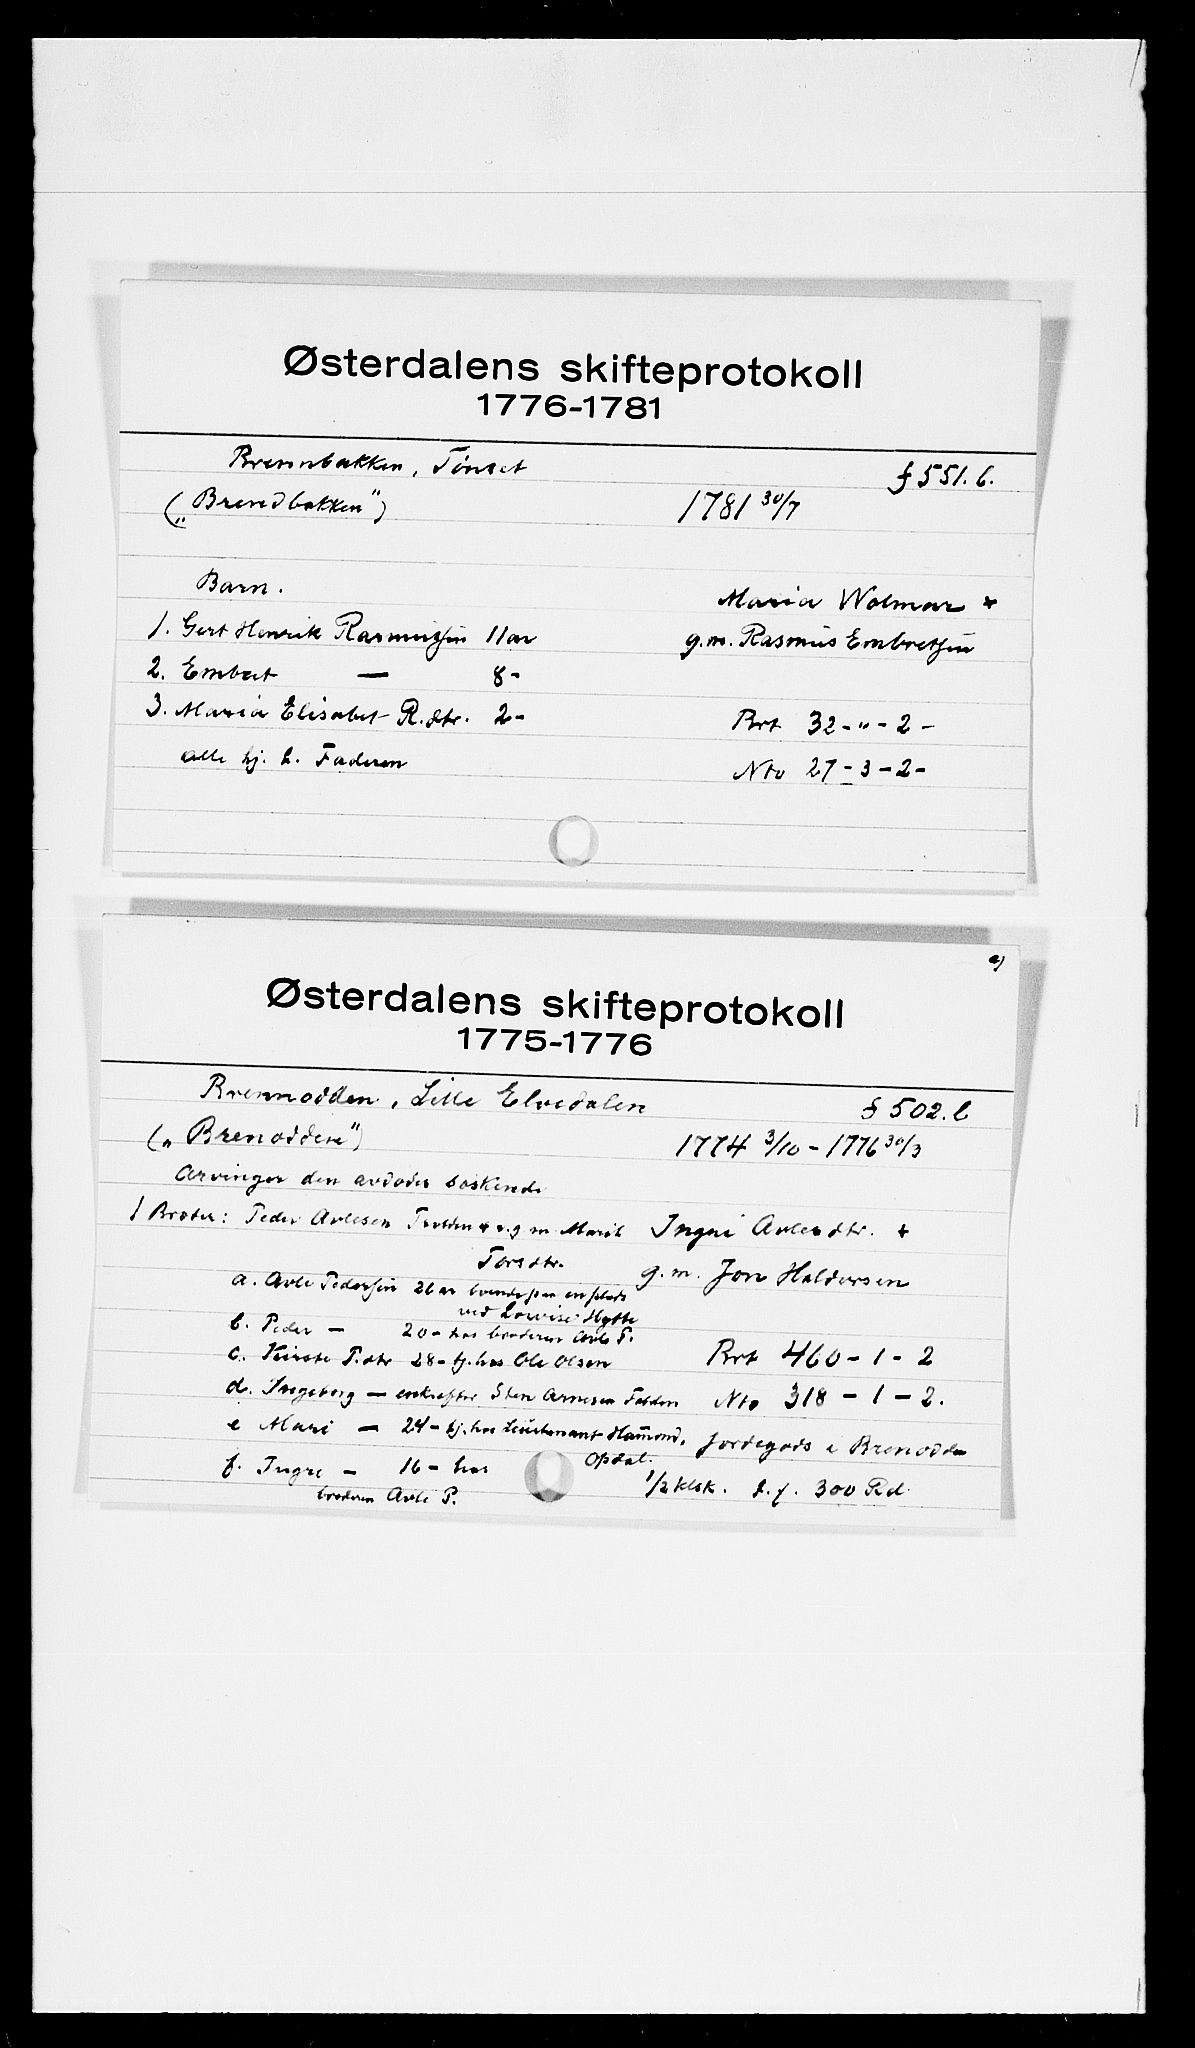 Østerdalens skifteprotokoll
1776-1781
Brennbakken, Tönset
f 551. b.
(„Brendbakken")
1781 30/7
Barn.
Maria Wolmar +
1. Gert Henrik Rasmussen 11 ar
g.m. Rasmus Embretsen
2. Embret — 8 -
3. Maria Elisabet R.dtr. 2 -
Brt 32 - " - 2 -
alle hj. h. Faderen
Nto 27 - 3 - 2 -
a)
Østerdalens skifteprotokoll
1775-1776
Brennodden, Lille Elvedalen
f 502. b
(„Brenodden")
1774 3/10 - 1776 30/3
Arvinger den avdødes søskende
1 Broder: Peder Avlesen + v. g m Marit
Torsdtr.
Ingri Avlesdtr. +
g. m. Jon Haldorsen
a. Avle Pedersen 26 ar boende paa en plads
ved Lovise Hytte
b. Peder — 20 - hos broderen Avle P.
c. Kirste P.dtr 28 - tj. hos Ole Olsen
Brt 460 - 1 - 2
d. Ingeborg — enke efter Sten Arnesen
Nto 318 - 1 - 2.
e Mari — 24 - tj. hos Leutenant Hamond,
Opdal.
Jordegods i Brenodden
f. Ingri — 16 - hos
broderen Avle P.
1/2 klsk. f. 300 Rd